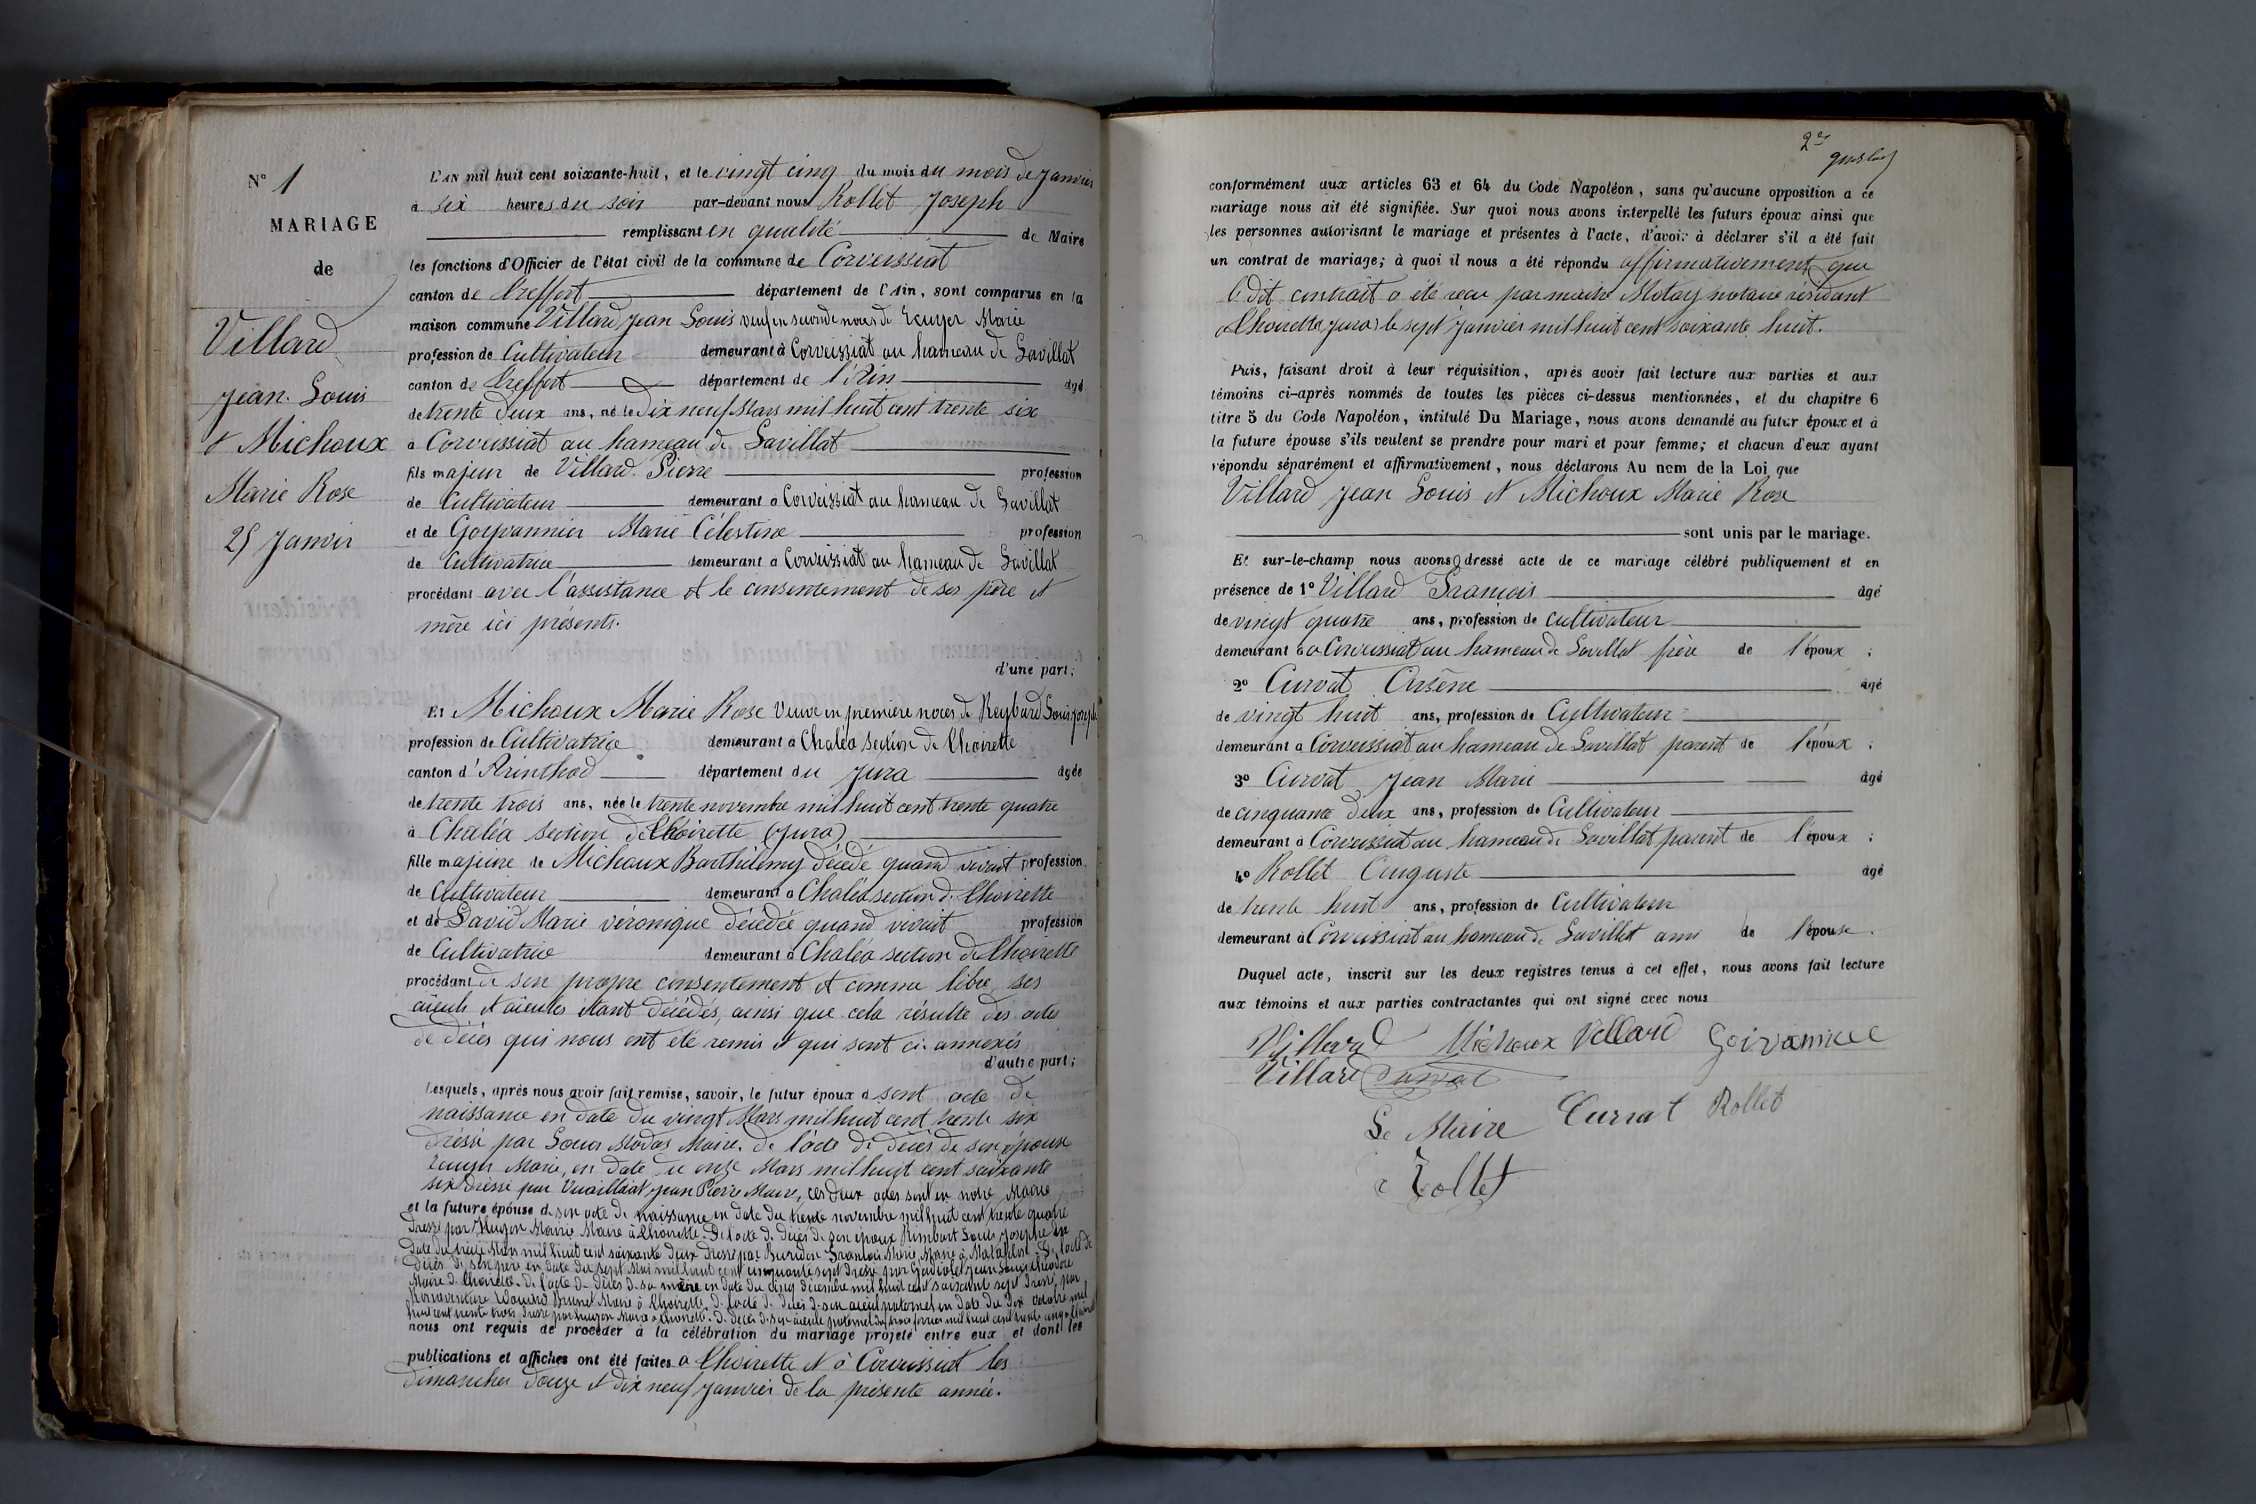 N° 1
MARIAGE
de
Villard
Jean Louis
et Michoux
Marie Rose
25 Janvier
L'AN mil huit cent soixante-huit, et le vingt cinq du mois du mois de Janvier
à six heures du soir par-devant nous Rollet Joseph
remplissant en qualité de Maire
les fonctions d'Officier de l'état civil de la commune de Corveissiat
canton de Treffort département de l'Ain, sont comparus en la
maison commune Villard Jean Louis veuf en seconde noces de Ecuyer Marie
profession de Cultivateur demeurant à Corveissiat au hameau de Savillat
canton de Treffort département de l'Ain âgé
de trente deux ans, né le dix neuf Mars mil huit cent trente six
à Corveissiat au hameau de Savillat
fils majeur de Villard Pierre profession
de Cultivateur demeurant à Corveissiat au hameau de Savillat
et de Marie Célestine profession
de Cultivatrice demeurant à Corveissiat au hameau de Savillat
procédant avec l'assistance et le consentement de ses père et
mère ici présents.
d'une part;
Et Michoux Marie Rose Veuve en première noces de Reybard Louis Joseph
profession de Cultivatrice demeurant à Chaléa section de Thoirette
canton d'Arinthod département du Jura âgée
de trente trois ans, née le trente novembre mil huit cent trente quatre
à Chaléa section de Thoirette (Jura)
fille majeure de Michoux Barthélemy décédé quand vivait profession
de Cultivateur demeurant à Chaléa section de Thoirette
et de David Marie véronique décédée quand vivait profession
de Cultivatrice demeurant à Chaléa section de Thoirette
procédant de son propre consentement et comme libre, ses
aïeuls et aïeules étant décédés, ainsi que cela résulte des actes
de décès qui nous ont été remis et qui sont ci-annexés
d'autre part;
Lesquels, après nous avoir fait remise, savoir, le futur époux d sont acte de
naissance en date du vingt Mars mil huit cent trente six
dressé par Louis Modas Maire. de l'acte de décès de son épouse
Ecuyer Marie, en date du onze Mars mil huit cent soixante
six dressé par Vuaillat Jean Pierre Maire, ces deux actes sont en notre Mairie
et la future épouse de son acte de naissance en date du trente novembre mil huit cent trente quatre
dressé par Maire à Thoirette. De l'acte de décès de son époux Louis Josephe en
date du treize Mars mil huit cent soixante deux dressé par François Marie, Maire à De l'acte de
décès de son père en date du sept Mai mil huit cent cinquante sept dressé par Jean Louis Théodore
Maire de Thoirette. de l'acte de décès de sa mère en date du cinq décembre mil huit cent soixante sept dressé par
Brunet Maire à Thoirette. de l'acte de décès de son aïeul paternel en date du dix octobre mil
huit cent trente trois dressé par Maire à Thoirette. de décès de son aïeule
nous ont requis de procéder à la célébration du mariage projeté entre eux et dont les
publications et affiches ont été faites à Thoirette et à Corveissiat les
dimanches douze et dix neuf Janvier de la présente année.
conformément aux articles 63 et 64 du Code Napoléon, sans qu'aucune opposition a ce
mariage nous ait été signifiée. Sur quoi nous avons interpellé les futurs époux ainsi que
les personnes autorisant le mariage et présentes à l'acte, d'avoir à déclarer s'il a été fait
un contrat de mariage; à quoi il nous a été répondu affirmativement que
le dit contrait a été reçu par maitre notaire résidant
à Thoirette (Jura) le sept Janvier mil huit cent soixante huit.
Puis, faisant droit à leur réquisition, après avoir fait lecture aux parties et aux
témoins ci-après nommés de toutes les pièces ci-dessus mentionnées, et du chapitre 6
titre 5 du Code Napoléon, intitulé Du Mariage, nous avons demandé au futur époux et à
la future épouse s'ils veulent se prendre pour mari et pour femme; et chacun d'eux ayant
répondu séparément et affirmativement, nous déclarons Au nom de la Loi que
Villard Jean Louis et Michoux Marie Rose
sont unis par le mariage.
Et sur-le-champ nous avons dressé acte de ce mariage célébré publiquement et en
présence de 1° Villard François âgé
de vingt quatre ans, profession de cultivateur
demeurant à Corveissiat au hameau de Savillat frère de l'époux ;
2° Curvat Arsène âgé
de vingt huit ans, profession de Cultivateur
demeurant à Corveissiat au hameau de Savillat parent de l'époux ;
3° Curvat Jean Marie âgé
de cinquante deux ans, profession de Cultivateur
demeurant à Corveissiat au hameau de Savillat parent de l'époux ;
4° Rollet Auguste âgé
de trente huit ans, profession de Cultivateur
demeurant à Corveissiat au hameau de Savillat ami de l'épouse.
Duquel acte, inscrit sur les deux registres tenus à cet effet, nous avons fait lecture
aux témoins et aux parties contractantes qui ont signé avec nous
Villard Michoux Villard
Villard Curvat
Le Maire Curvat Rollet
Rollet